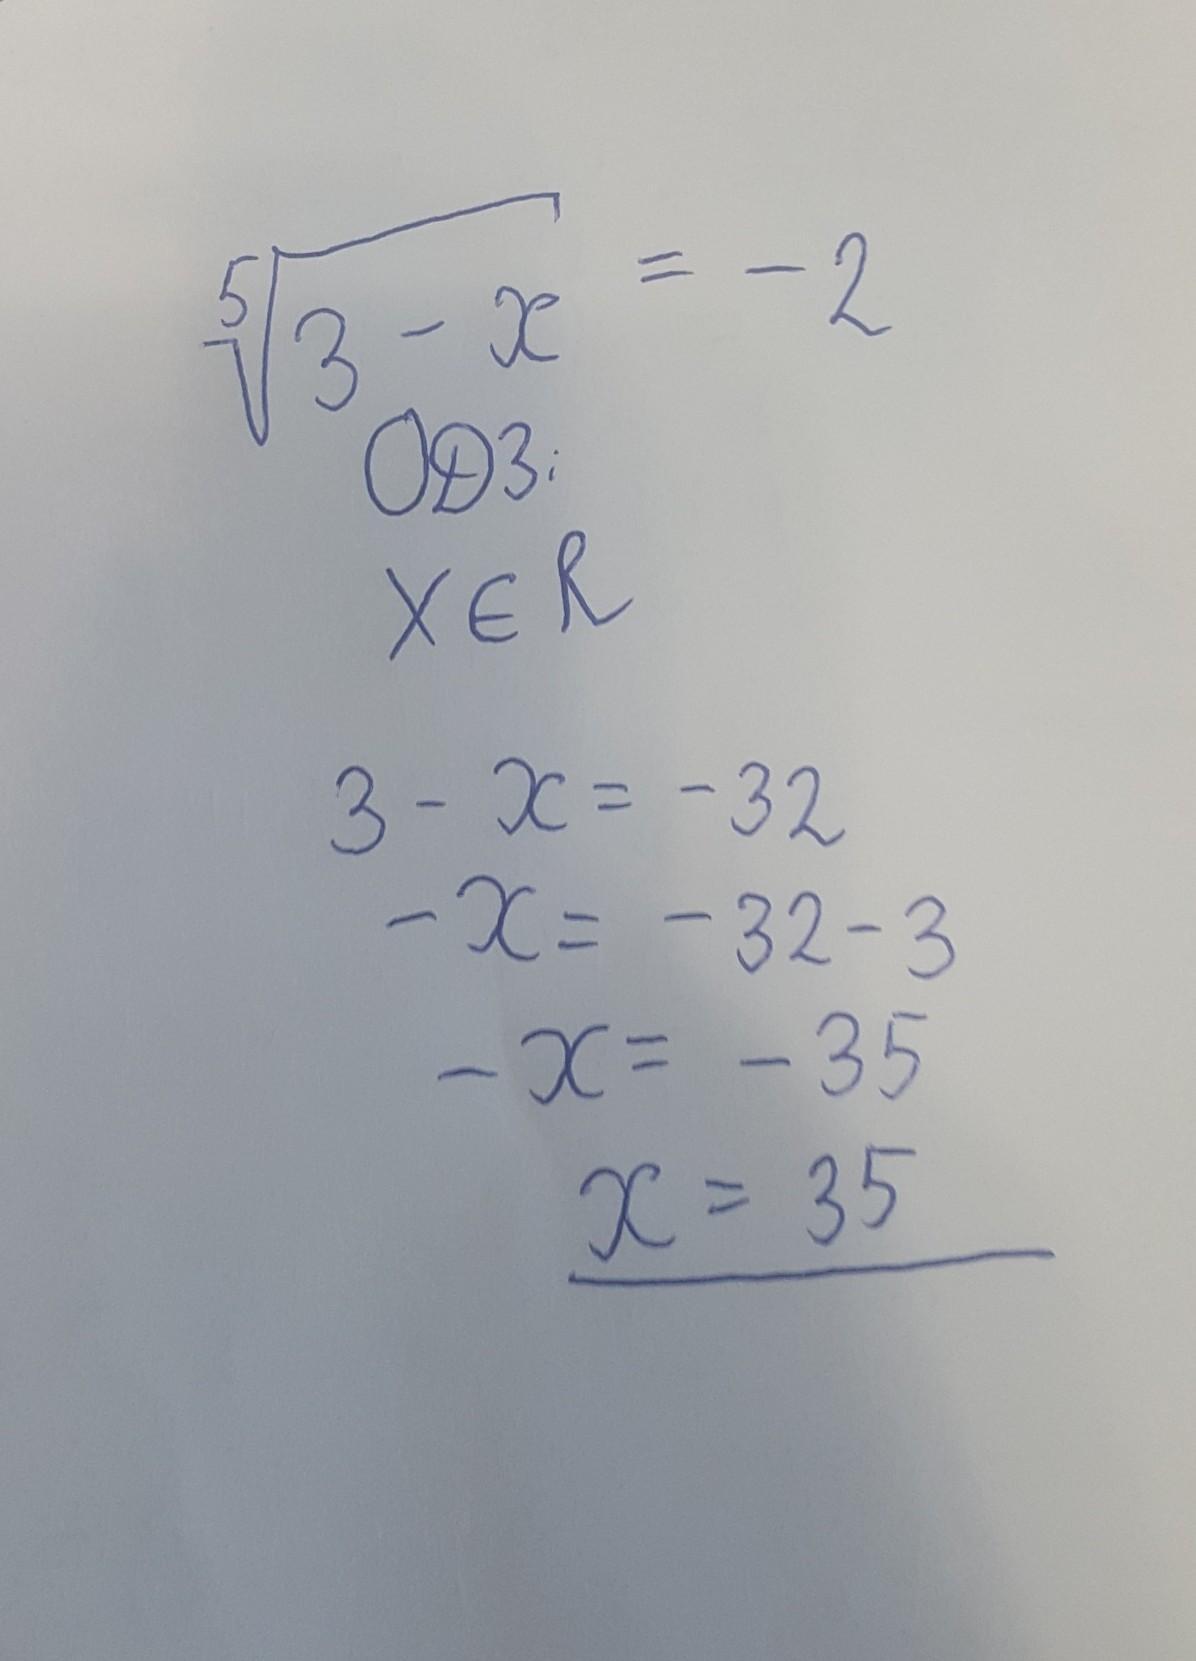 ⁵√(3 - x) = -2
ОДЗ:
X ∈ R
3 - x = -32
-x = -32-3
-x = -35
x = 35